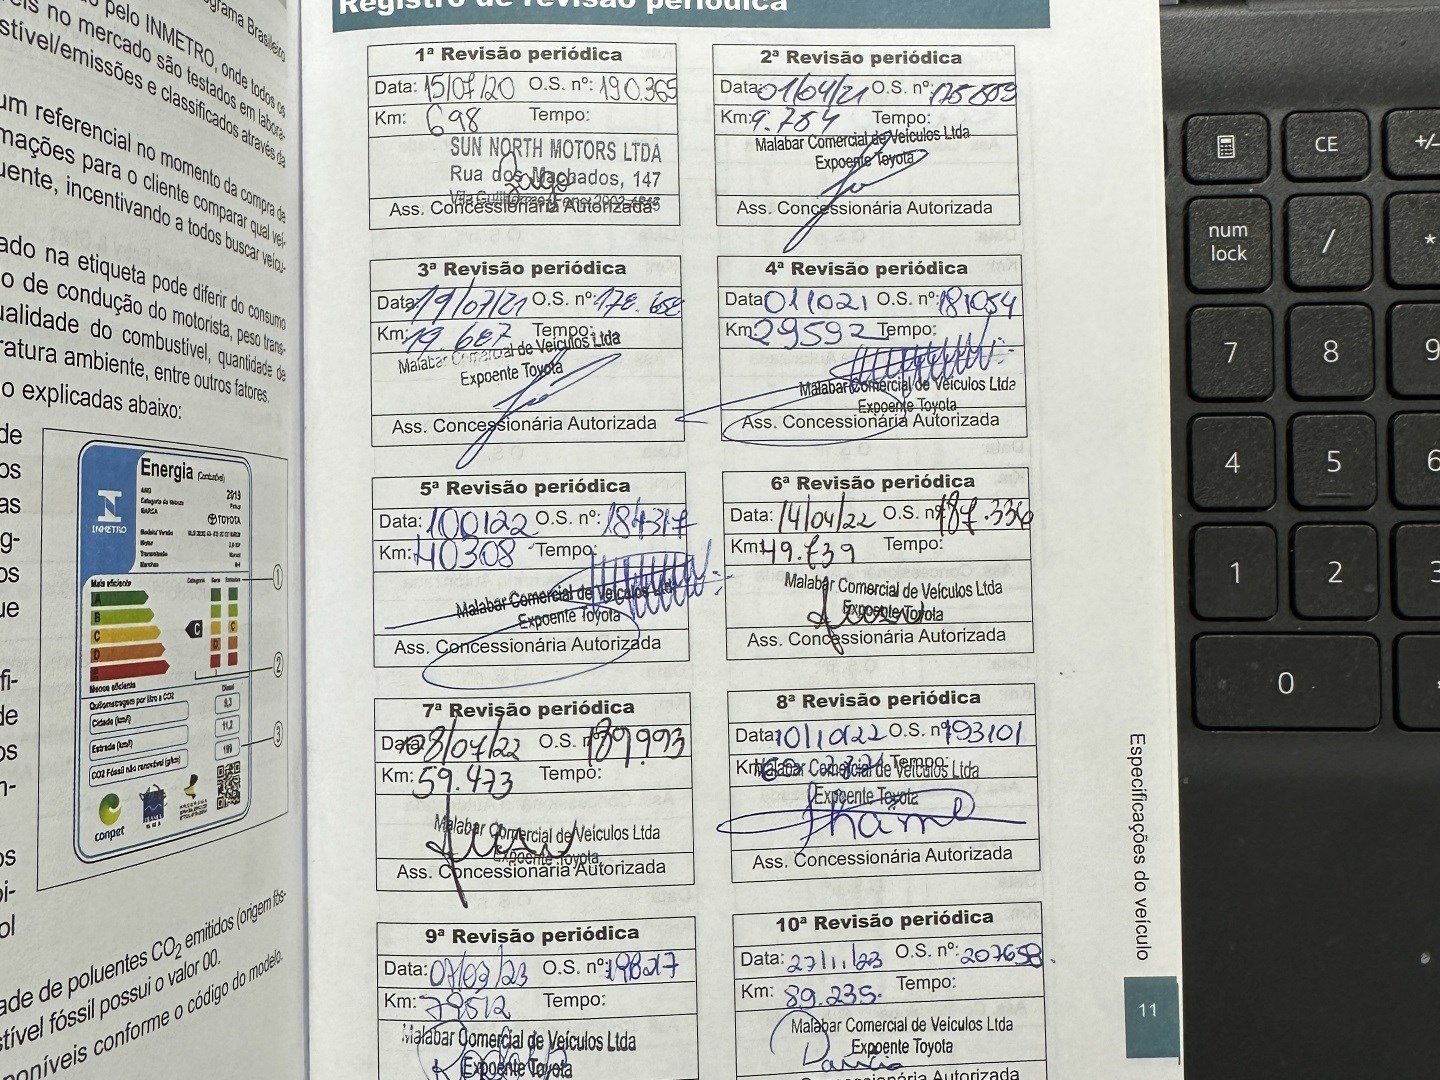 ograma Brasileiro
pelo INMETRO, onde todos os
no mercado são testados em labora-
stível/emissões e classificados através da
um referencial no momento da compra de
mações para o cliente comparar qual veí-
uente, incentivando a todos buscar veícu-
ado na etiqueta pode diferir do consumo
o de condução do motorista, peso trans-
ualidade do combustível, quantidade de
ratura ambiente, entre outros fatores.
o explicadas abaixo:
de
os
as
g-
os
ue
fi-
de
os
n-
os
oi-
ol
Energia (Combustível)
INMETRO
2019
TOYOTA
Mais eficiente
A
B
C
D
C
C
D
Menos eficiente
Quilometragem por litro e CO2
Diesel
Cidade (km/l)
9,3
Estrada (km/l)
11,2
CO2 Fóssil não renovável (g/km)
199
conpet
1
2
3
ade de poluentes CO2 emitidos (origem fós-
stível fóssil possui o valor 00.
oníveis conforme o código do modelo.
Registro de revisão periódica
1ª Revisão periódica
Data: 15/07/20 O.S. nº: 190.365
Km: 698 Tempo:
SUN NORTH MOTORS LTDA
Rua dos Machados, 147
Ass. Concessionária Autorizada
2ª Revisão periódica
Data: 01/04/21 O.S. nº: 175.859
Km: 9.754 Tempo:
Malabar Comercial de Veículos Ltda
Expoente Toyota
Ass. Concessionária Autorizada
3ª Revisão periódica
Data: 19/07/21 O.S. nº: 178.652
Km: 19.687 Tempo:
Malabar Comercial de Veículos Ltda
Expoente Toyota
Ass. Concessionária Autorizada
4ª Revisão periódica
Data: 011021 O.S. nº: 181054
Km: 29592 Tempo:
Malabar Comercial de Veículos Ltda
Expoente Toyota
Ass. Concessionária Autorizada
5ª Revisão periódica
Data: 100122 O.S. nº: 184317
Km: 40308 Tempo:
Malabar Comercial de Veículos Ltda
Expoente Toyota
Ass. Concessionária Autorizada
6ª Revisão periódica
Data: 14/04/22 O.S. nº 187.336
Km: 49.739 Tempo:
Malabar Comercial de Veículos Ltda
Expoente Toyota
Ass. Concessionária Autorizada
7ª Revisão periódica
Data: 08/07/22 O.S. nº 189.993
Km: 59.473 Tempo:
Malabar Comercial de Veículos Ltda
Expoente Toyota
Ass. Concessionária Autorizada
8ª Revisão periódica
Data: 10/10/22 O.S. nº 193101
Km: Tempo:
Malabar Comercial de Veículos Ltda
Expoente Toyota
Ass. Concessionária Autorizada
9ª Revisão periódica
Data: 07/03/23 O.S. nº: 198217
Km: 79512 Tempo:
Malabar Comercial de Veículos Ltda
Expoente Toyota
10ª Revisão periódica
Data: 27/11/23 O.S. nº: 207658.
Km: 89.235. Tempo:
Malabar Comercial de Veículos Ltda
Expoente Toyota
Ass. Concessionária Autorizada
Especificações do veículo
11
CE
+/-
num
lock
/
*
7
8
9
4
5
6
1
2
3
0